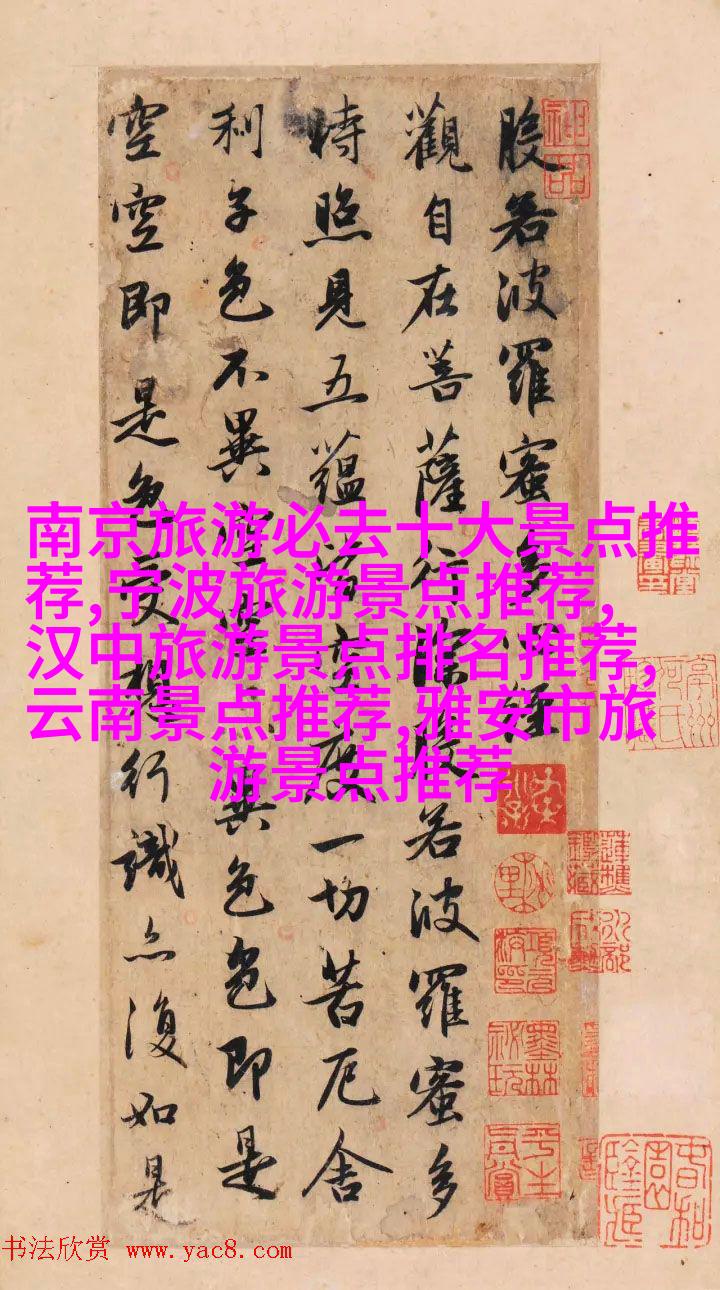 般若波羅蜜多心經
觀自在菩薩行深般若波羅蜜多
時照見五蘊皆空度一切苦厄舍
利子色不異空空不異色色即是
空空即是色受想行識亦復如是
南京旅游必去十大景点推
荐,宁波旅游景点推荐,
汉中旅游景点排名推荐,
云南景点推荐,雅安市旅
游景点推荐
神品
墨林秘玩
书法欣赏 www.yac8.com